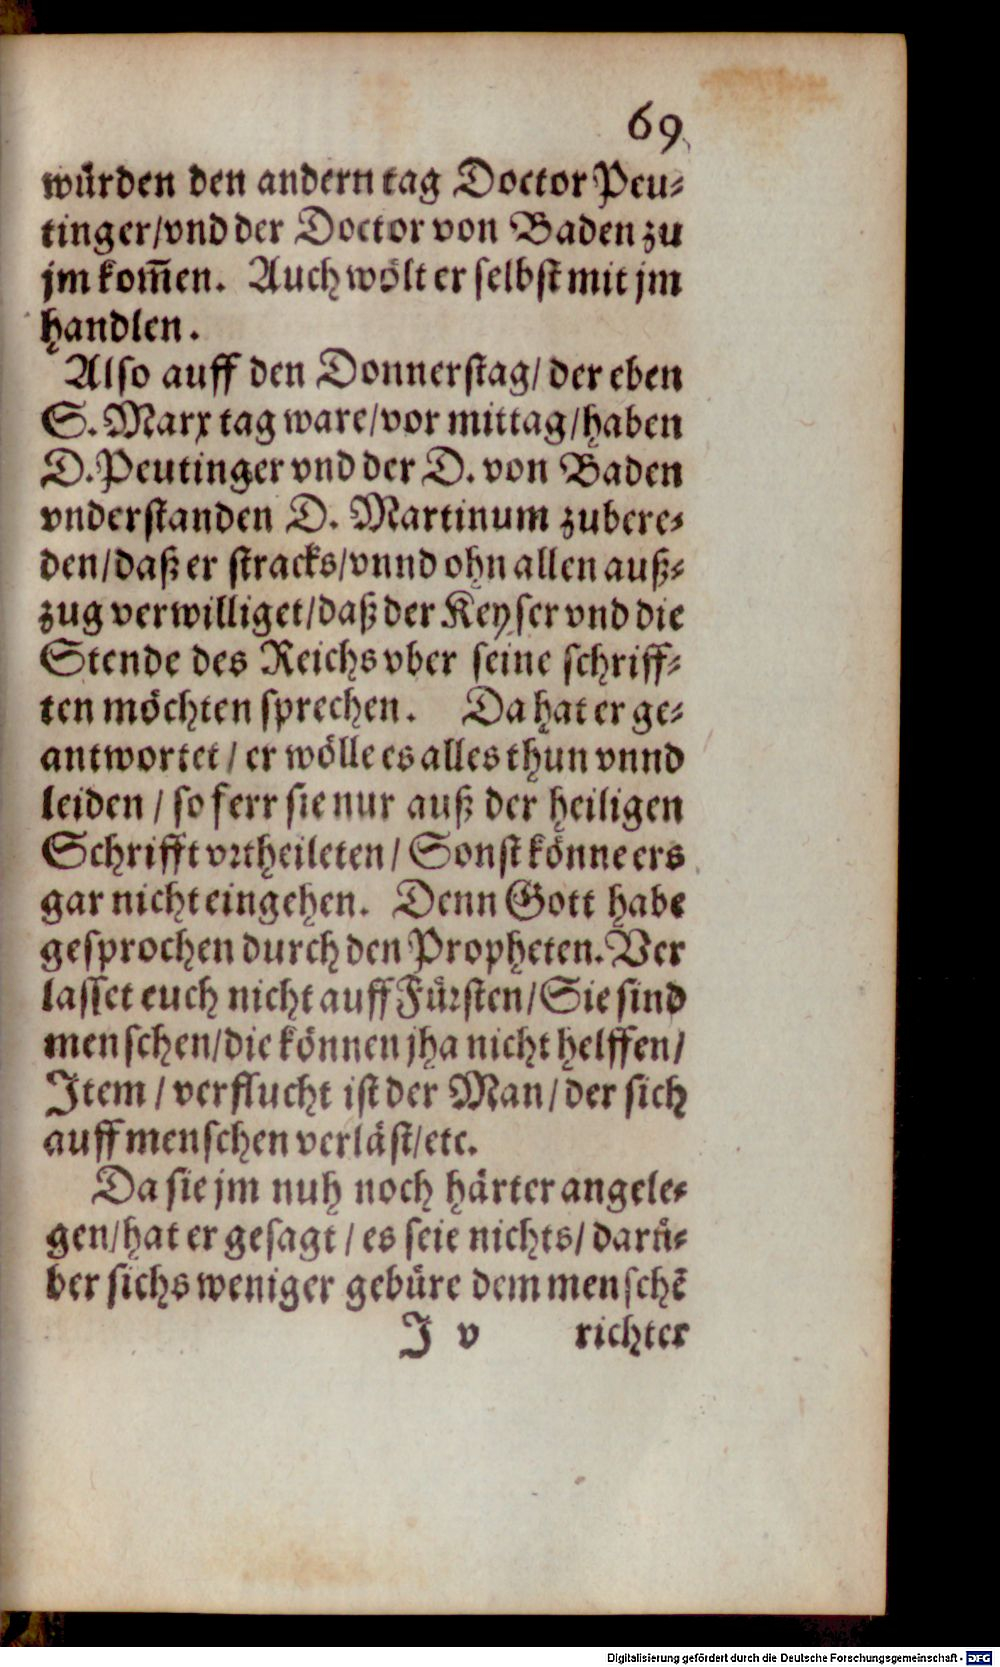 69
wuͤrden den andern tag Doctor Peu⸗
tinger/vnd der Doctor von Baden zu
jm kom̃en. Auch woͤlt er selbst mit jm
handlen.
Also auff den Donnerstag/ der eben
S. Marx tag ware/vor mittag/haben
D. Peutinger vnd der D. von Baden
vnderstanden D. Martinum zubere⸗
den/daß er stracks/vnnd ohn allen auß⸗
zug verwilliget/daß der Keyser vnd die
Stende des Reichs vber seine schriff⸗
ten moͤchten sprechen. Da hat er ge⸗
antwortet / er woͤlle es alles thun vnnd
leiden / so ferr sie nur auß der heiligen
Schrifft vrtheileten / Sonst koͤnne ers
gar nicht eingehen. Denn Gott habe
gesprochen durch den Propheten. Ver
lasset euch nicht auff Fuͤrsten/Sie sind
menschen/die koͤnnen jha nicht helffen/
Item / verflucht ist der Man/der sich
auff menschen verlaͤst/etc.
Da sie jm nuh noch haͤrter angele⸗
gen/hat er gesagt / es seie nichts/ daruͤ⸗
ber sichs weniger gebuͤre dem menschẽ
J v richter
Digitalisierung gefördert durch die Deutsche Forschungsgemeinschaft - DFG